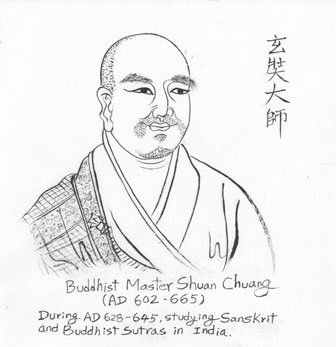 玄奘大師
Buddhist Master Shuan Chuang
(AD 602-665)
During AD 628-645, studying Sanskrit
and Buddhist Sutras in India.